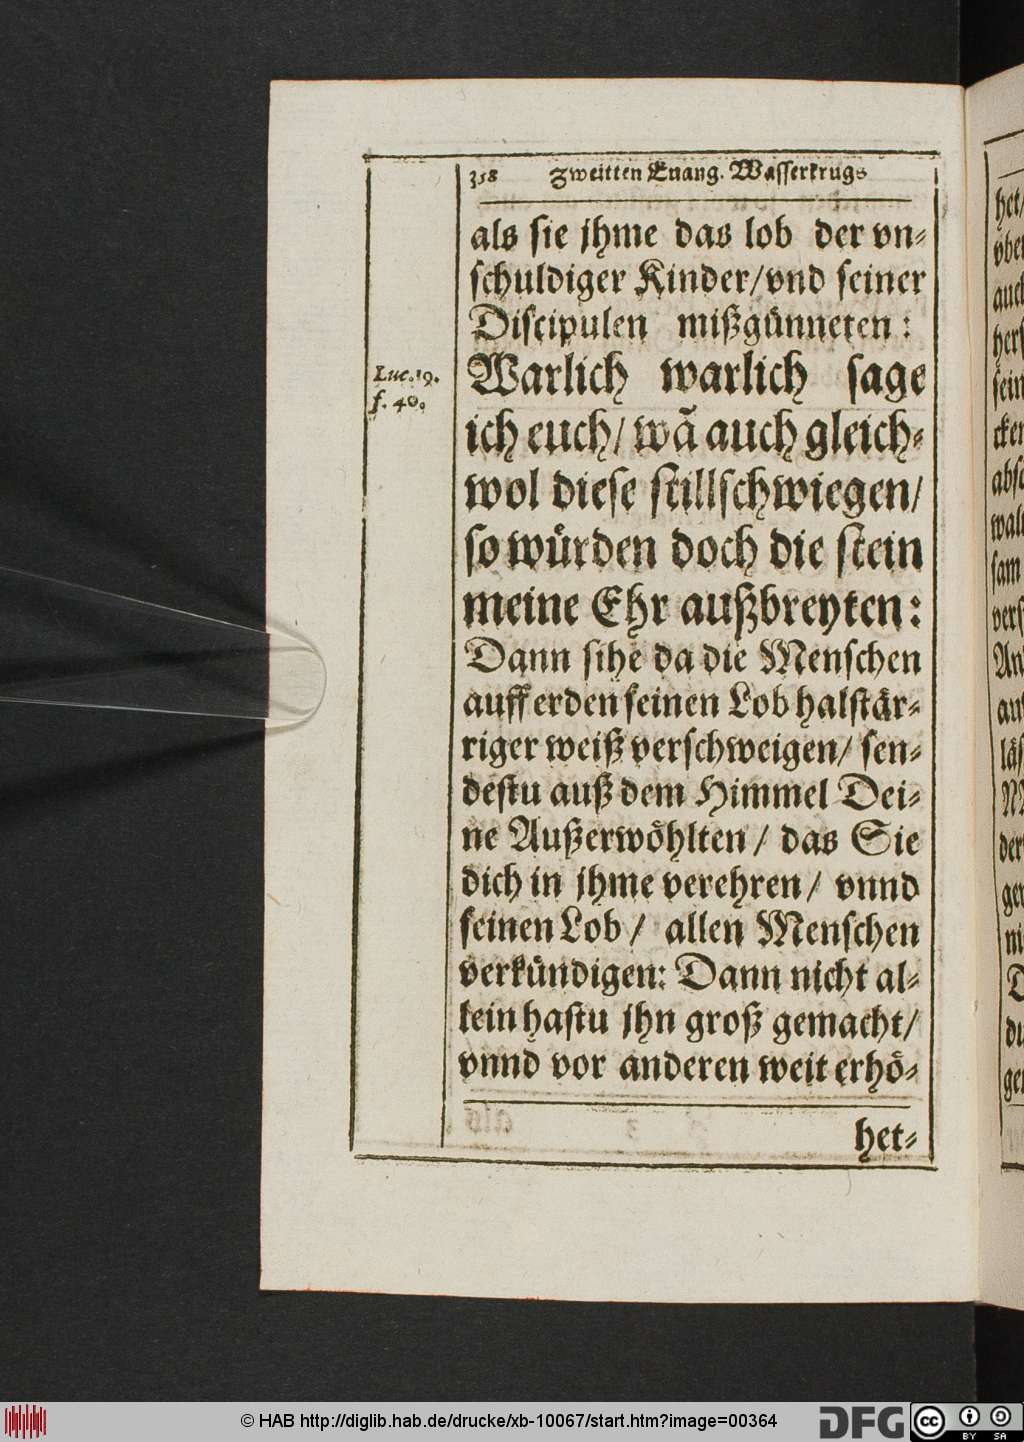 318 Zweitten Euang. Wasserkrugs
als sie jhme das lob der vn-
schuldiger Kinder/vnd seiner
Discipulen mißgünneten:
Luc. 19.
f. 40.
Warlich warlich sage
ich euch/ wã auch gleich-
wol diese stillschwiegen/
so würden doch die stein
meine Ehr außbreyten:
Dann sihe da die Menschen
auff erden seinen Lob halstär-
riger weiß verschweigen/ sen-
destu auß dem Himmel Dei-
ne Außerwöhlten/ das Sie
dich in jhme verehren/ vnnd
seinen Lob/ allen Menschen
verkündigen: Dann nicht al-
lein hastu jhn groß gemacht/
vnnd vor anderen weit erhö-
het-
© HAB http://diglib.hab.de/drucke/xb-10067/start.htm?image=00364
DFG
cc BY SA